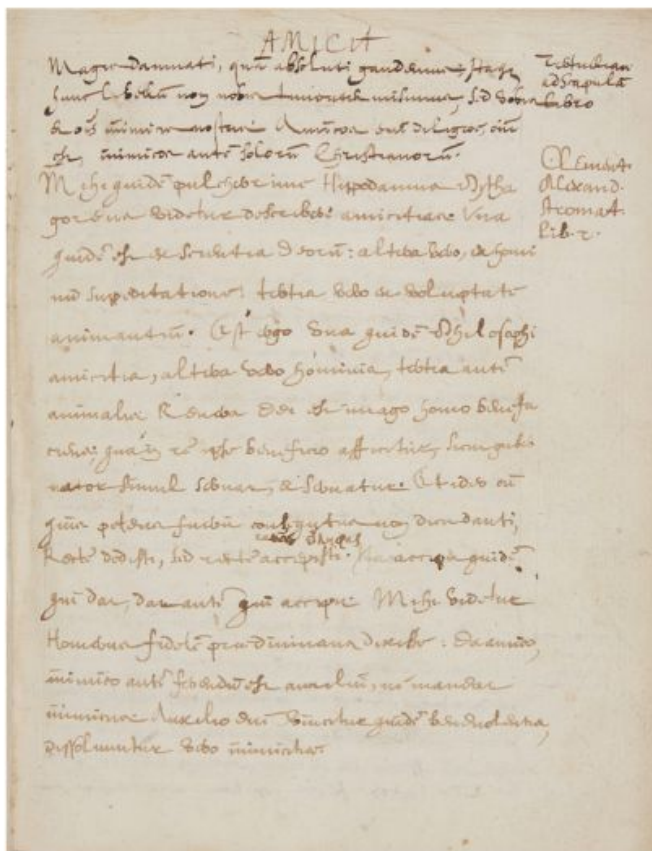 AMICIT
Magis damnati, quã absoluti gaudemus: Itaqʒ
hunc libellũ non nobis timentes misimus, sed vobis
& oĩb inimicis nostris Amicos enĩ diligere, oĩũ
est, inimicos autẽ solorũ Christianorũ.
Tertulian
ad Scapulã
libro
Mihi quidẽ pulcherrime Hippodamus Pytha
goreus videtur describere amicitias. Una
quidẽ est ex scientia Deorũ: altera vero, ex homi
nũ supeditatione: tertia vero ex voluptate
animantiũ. Est ergo una quidẽ Philosophi
amicitia, altera vero hominis, tertia autẽ
animalis Revera Dei est imago homo benefa
ciens, qua in re ipse beneficio afficitur, sicut guber
nator simul servat, & servatur. Et ideo cũ
quis petens fuerit consequutus non dicit danti,
Recte dedisti, sed recte accepisti. Ita accipit quidẽ
qui dat, dat autẽ qui accipit Mihi videtur
Homerus fidelẽ dixisse: Da amico,
inimico autẽ ferendũ est auxiliũ, ne maneat
inimicus Auxilio enĩ vincitur quidẽ benevolentia,
dissolvuntur vero inimicitiæ
Clement.
Alexand.
stromat.
lib. 2.